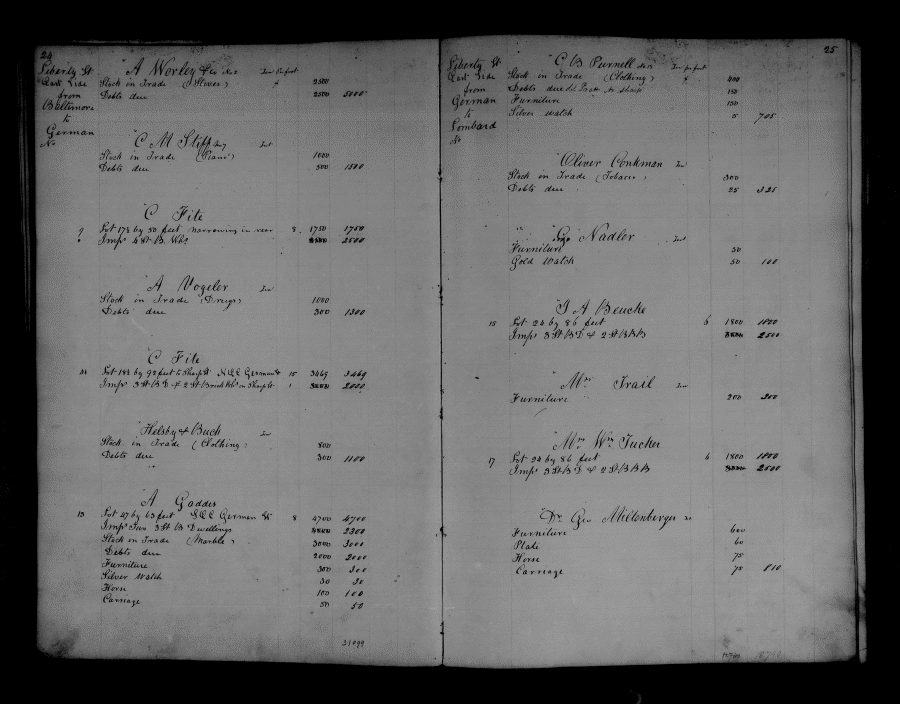 24
Liberty St
East Side
from
Baltimore
to
German
No
A Worley & Co No 1 Ten Per foot
Stock in Trade (Stoves) 2500
Debts due 2500 5000
C M Stiff
Stock in Trade (Piano) 1000
Debts due 500 1500
C Fite
9 Lot 17½ by 50 feet narrowing in rear 8. 1750 1750
Imps 4 St B. Whs 2500
A Vogeler
Stock in Trade (Drugs) 1000
Debts due 300 1300
C Fite
Lot by 92 feet to Sharp St German St 15 3469 3469
Imps 3 St B D & 2 St Brick Whs on Sharp St 2000
Helsby & Buch
Stock in Trade (Clothing) 800
Debts due 300 1100
A Gaddes
13 Lot 47 by 63 feet German St 8 4700 4700
Imps Two 3 St B Dwellings 2300
Stock in Trade (Marble) 3000 3000
Debts due 2000 2000
Furniture 300 300
Silver Watch 30 30
Horse 100 100
Carriage 50 50
31099
25
Liberty St
East Side
from
German
to
Lombard
No
C B Purnell No 13 Ten per foot
Stock in Trade (Clothing) 400
Debts due 150
Furniture 150
Silver Watch 5 705
Oliver Conkman Ten
Stock in Trade (Tobacco) 300
Debts due 25 325
Nadler
Furniture 50
Gold Watch 50 100
J A Beucke
15 Lot 24 by 86 feet 6 1800 1800
Imps 3 St B D & 2 St B B B 2500
Mrs Trail Ten
Furniture 200 200
Mrs Wm Tucker
17 Lot 24 by 86 feet 6 1800 1800
Imps 3 St B D & 2 St B B B 2500
Dr Geo Miltenberger
Furniture 600
Plate 60
Horse 75
Carriage 75 810